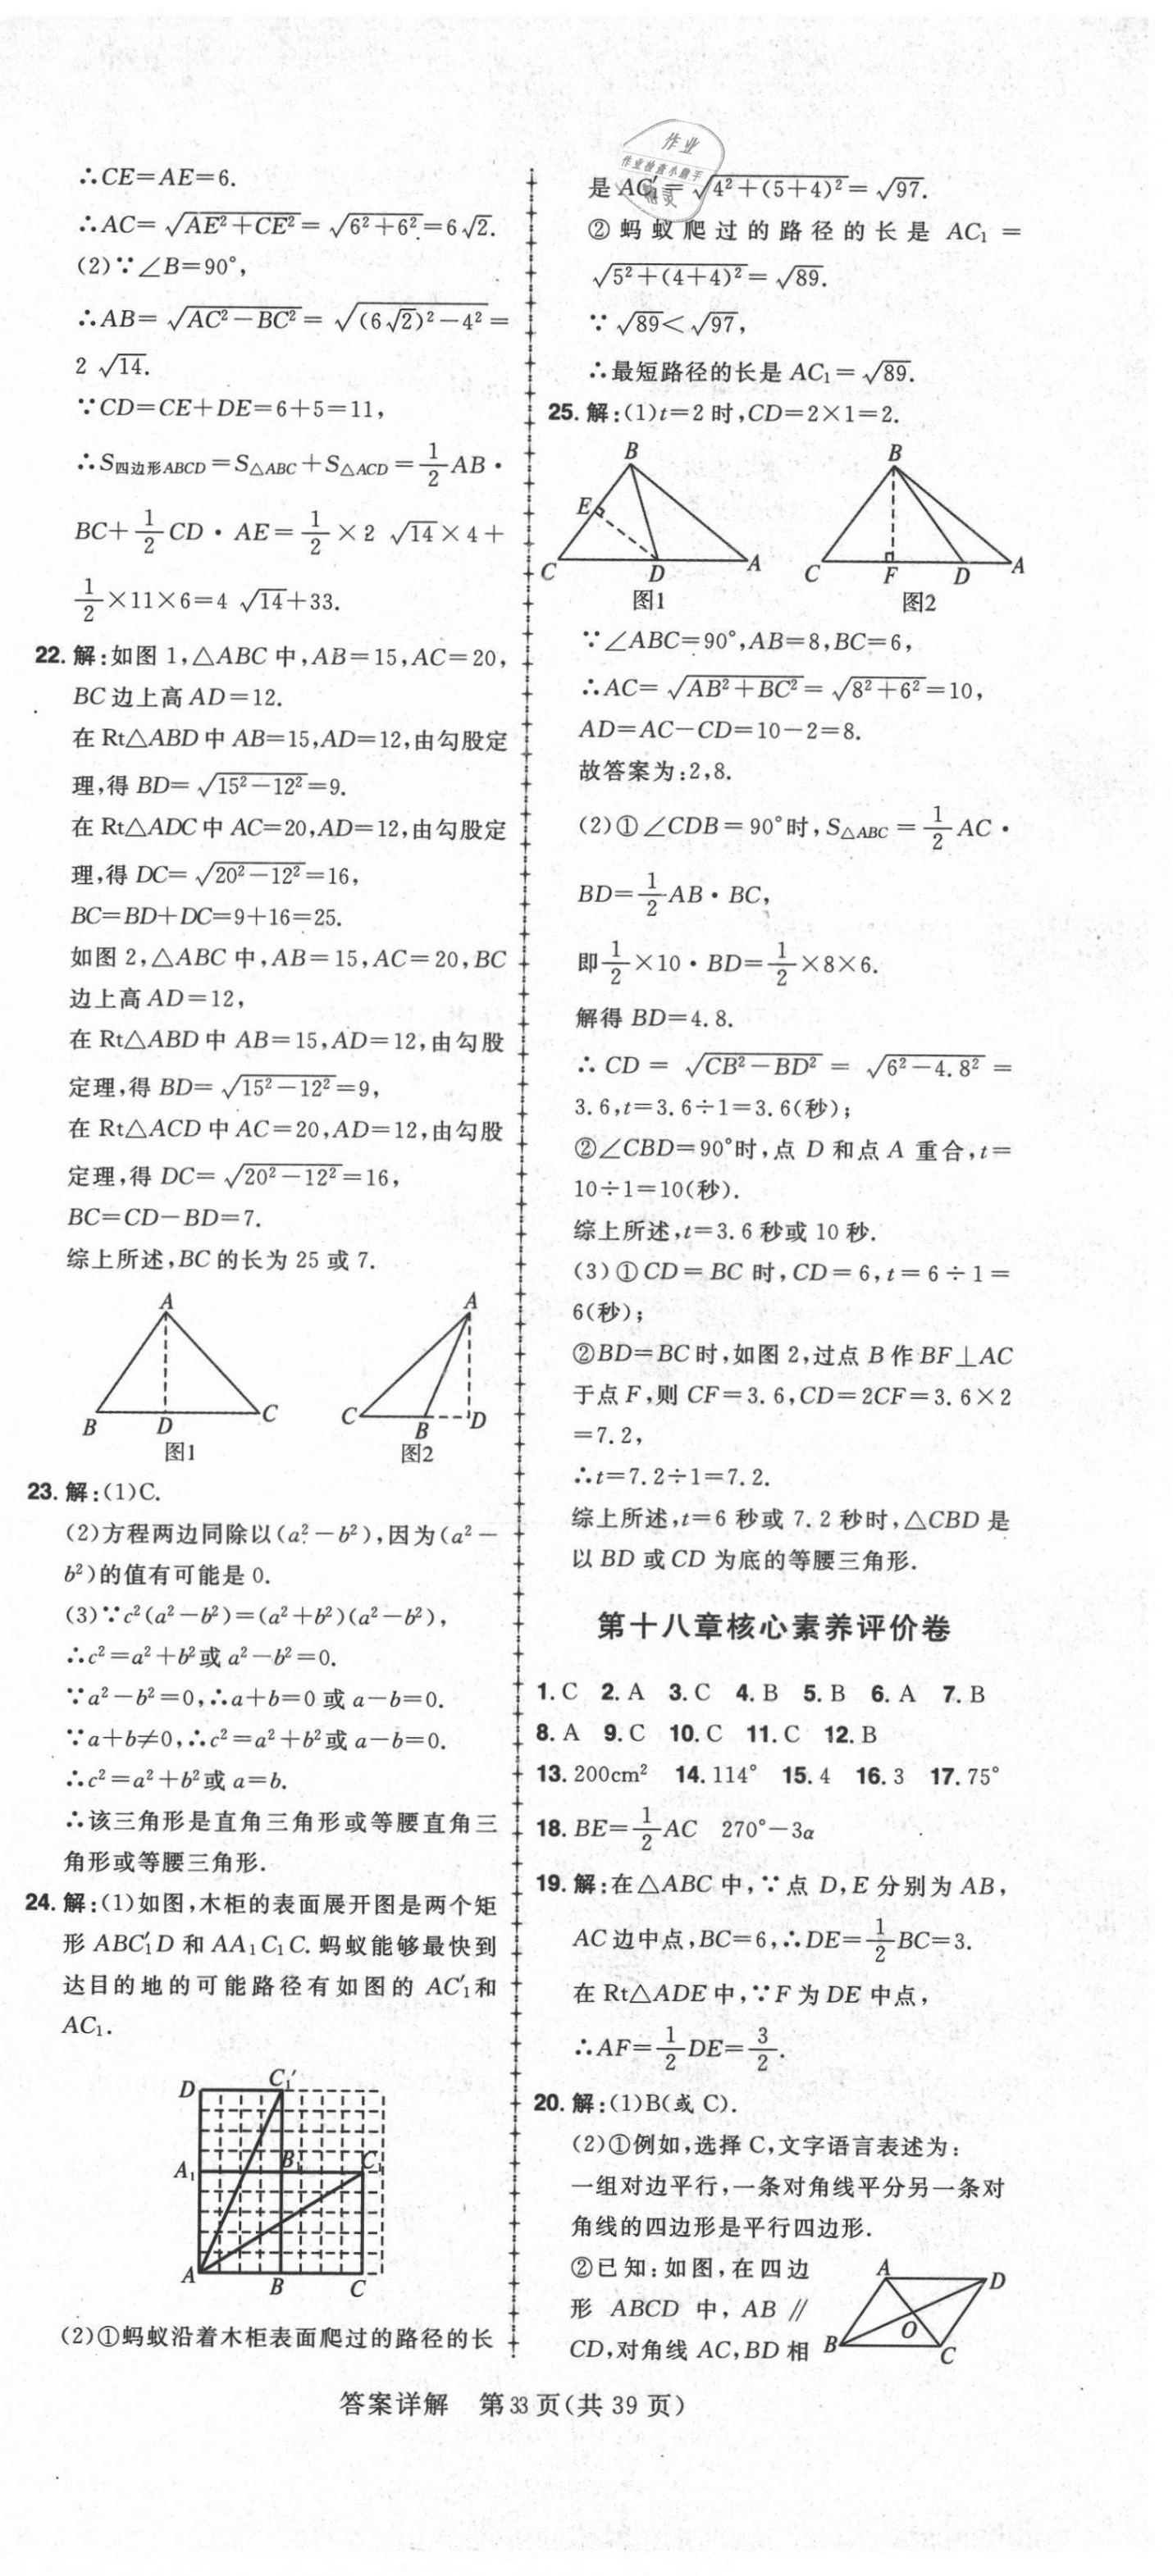 ∴CE=AE=6.
∴AC=√(AE²+CE²)=√(6²+6²)=6√2.
(2)∵∠B=90°,
∴AB=√(AC²-BC²)=√((6√2)²-4²)=
2√14.
∵CD=CE+DE=6+5=11,
∴S四边形ABCD=S△ABC+S△ACD=1/2AB·
BC+1/2CD·AE=1/2×2√14×4+
1/2×11×6=4√14+33.
22.解:如图1,△ABC中,AB=15,AC=20,
BC边上高AD=12.
在Rt△ABD中AB=15,AD=12,由勾股定
理,得BD=√(15²-12²)=9.
在Rt△ADC中AC=20,AD=12,由勾股定
理,得DC=√(20²-12²)=16,
BC=BD+DC=9+16=25.
如图2,△ABC中,AB=15,AC=20,BC
边上高AD=12,
在Rt△ABD中AB=15,AD=12,由勾股
定理,得BD=√(15²-12²)=9,
在Rt△ACD中AC=20,AD=12,由勾股
定理,得DC=√(20²-12²)=16,
BC=CD-BD=7.
综上所述,BC的长为25或7.
A
B
D
C
图1
A
C
B
D
图2
23.解:(1)C.
(2)方程两边同除以(a²-b²),因为(a²-
b²)的值有可能是0.
(3)∵c²(a²-b²)=(a²+b²)(a²-b²),
∴c²=a²+b²或a²-b²=0.
∵a²-b²=0,∴a+b=0或a-b=0.
∵a+b≠0,∴c²=a²+b²或a-b=0.
∴c²=a²+b²或a=b.
∴该三角形是直角三角形或等腰直角三
角形或等腰三角形.
24.解:(1)如图,木柜的表面展开图是两个矩
形ABC₁′D和AA₁C₁C.蚂蚁能够最快到
达目的地的可能路径有如图的AC₁′和
AC₁.
D
C₁′
A₁
B₁
C₁
A
B
C
(2)①蚂蚁沿着木柜表面爬过的路径的长
作业
作业检查小助手
是AC₁′=√(4²+(5+4)²)=√97.
②蚂蚁爬过的路径的长是AC₁=
√(5²+(4+4)²)=√89.
∵√89<√97,
∴最短路径的长是AC₁=√89.
25.解:(1)t=2时,CD=2×1=2.
B
E
C
D
A
图1
B
C
F
D
A
图2
∵∠ABC=90°,AB=8,BC=6,
∴AC=√(AB²+BC²)=√(8²+6²)=10,
AD=AC-CD=10-2=8.
故答案为:2,8.
(2)①∠CDB=90°时,S△ABC=1/2AC·
BD=1/2AB·BC,
即1/2×10·BD=1/2×8×6.
解得BD=4.8.
∴CD=√(CB²-BD²)=√(6²-4.8²)=
3.6,t=3.6÷1=3.6(秒);
②∠CBD=90°时,点D和点A重合,t=
10÷1=10(秒).
综上所述,t=3.6秒或10秒.
(3)①CD=BC时,CD=6,t=6÷1=
6(秒);
②BD=BC时,如图2,过点B作BF⊥AC
于点F,则CF=3.6,CD=2CF=3.6×2
=7.2,
∴t=7.2÷1=7.2.
综上所述,t=6秒或7.2秒时,△CBD是
以BD或CD为底的等腰三角形.
第十八章核心素养评价卷
1.C 2.A 3.C 4.B 5.B 6.A 7.B
8.A 9.C 10.C 11.C 12.B
13.200cm² 14.114° 15.4 16.3 17.75°
18.BE=1/2AC 270°-3α
19.解:在△ABC中,∵点D,E分别为AB,
AC边中点,BC=6,∴DE=1/2BC=3.
在Rt△ADE中,∵F为DE中点,
∴AF=1/2DE=3/2.
20.解:(1)B(或C).
(2)①例如,选择C,文字语言表述为:
一组对边平行,一条对角线平分另一条对
角线的四边形是平行四边形.
②已知:如图,在四边
形ABCD中,AB∥
CD,对角线AC,BD相
A
D
O
B
C
答案详解 第33页(共39页)